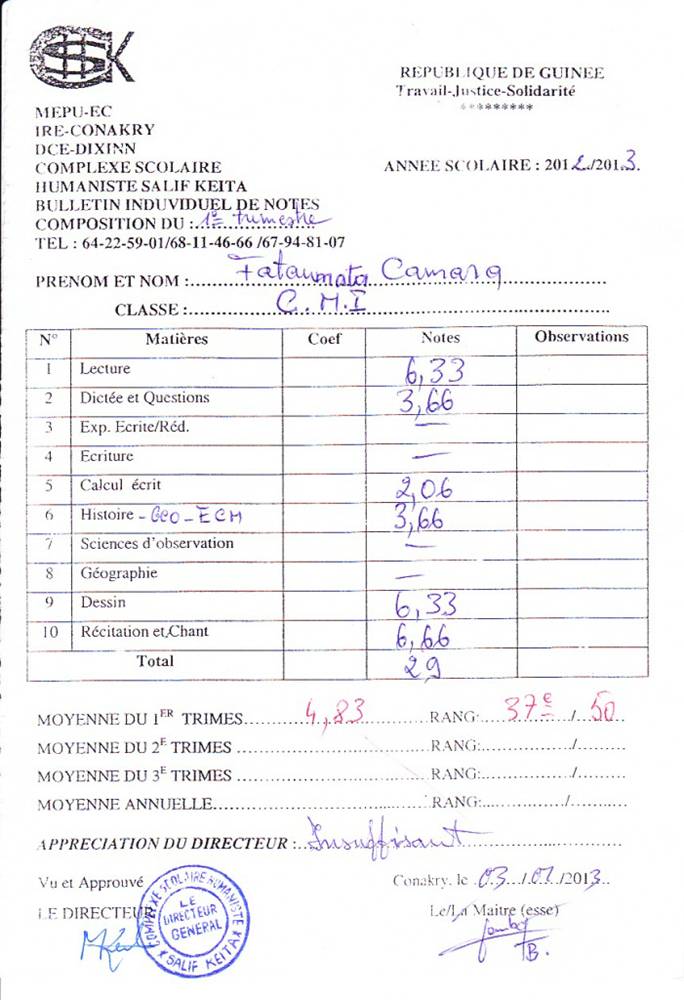 CHSSK
REPUBLIQUE DE GUINEE
Travail-Justice-Solidarité
*********
MEPU-EC
IRE-CONAKRY
DCE-DIXINN
COMPLEXE SCOLAIRE
HUMANISTE SALIF KEITA
ANNEE SCOLAIRE : 2012/2013.
BULLETIN INDUVIDUEL DE NOTES
COMPOSITION DU : 1e trimestre
TEL : 64-22-59-01/68-11-46-66 /67-94-81-07
PRENOM ET NOM : Fatoumata Camara
CLASSE : C.M.I
N° Matières Coef Notes Observations
1 Lecture 6,33
2 Dictée et Questions 3,66
3 Exp. Ecrite/Réd. —
4 Ecriture —
5 Calcul écrit 2,06
6 Histoire - Géo - ECM 3,66
7 Sciences d'observation —
8 Géographie —
9 Dessin 6,33
10 Récitation et Chant 6,66
Total 29
MOYENNE DU 1ER TRIMES 4,83 RANG: 37e / 50
MOYENNE DU 2E TRIMES RANG: /
MOYENNE DU 3E TRIMES RANG: /
MOYENNE ANNUELLE RANG: /
APPRECIATION DU DIRECTEUR : Insuffisant
Vu et Approuvé
Conakry, le 03/01/2013
LE DIRECTEUR
Le/La Maitre (esse)
COMPLEXE SCOLAIRE HUMANISTE
LE
DIRECTEUR
GENERAL
* SALIF KEITA *